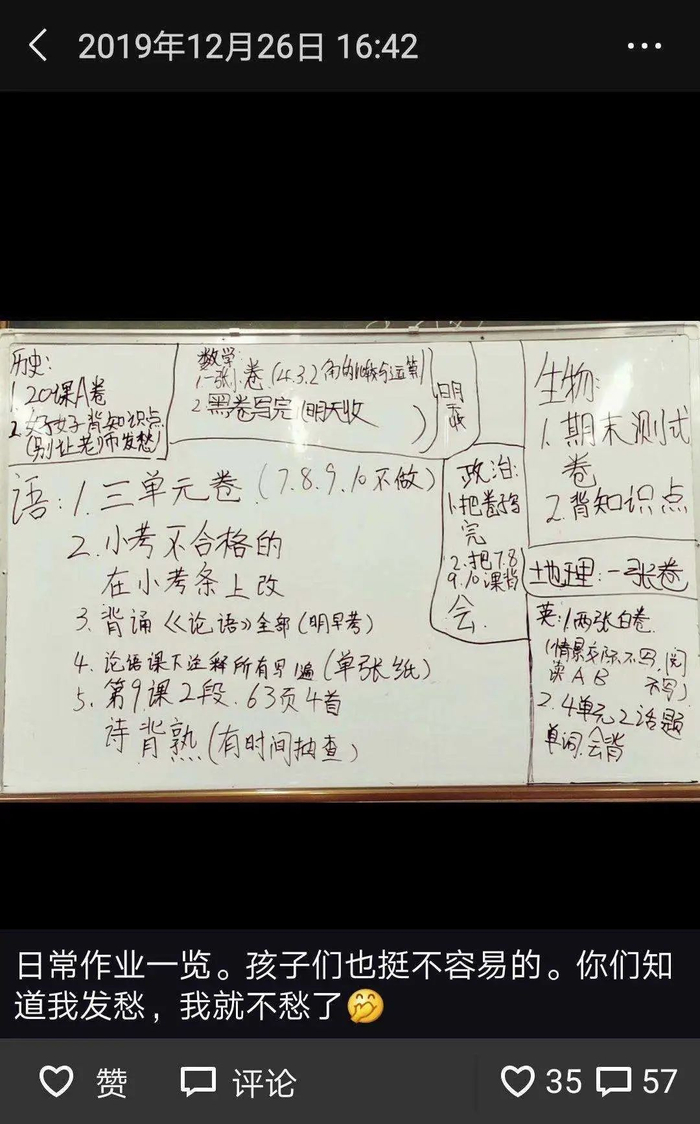 2019年12月26日 16:42
历史:
1.20课A卷
2.好好背知识点
(别让老师发愁)
数学:
1.一张小卷(4.3.2角的比较与运算)
2.黑卷写完(明天收
)
明
语:1.三单元卷(7.8.9.10不做)
2.小考不合格的
在小考条上改
3.背诵《论语》全部(明早考)
4.论语课下注释所有写1遍(单张纸)
5.第9课2段.63页4首
诗背熟(有时间抽查)
政治:
1.把卷子写
完
2.把7.8
9.10课背
会.
生物:
1.期末测试
卷
2.背知识点
地理:一张卷
英:1.两张白卷.
(情景交际不写,阅
读AB 不写)
2.4单元2话题
单词.会背
日常作业一览。孩子们也挺不容易的。你们知
道我发愁，我就不愁了🤭
赞 评论 35 57